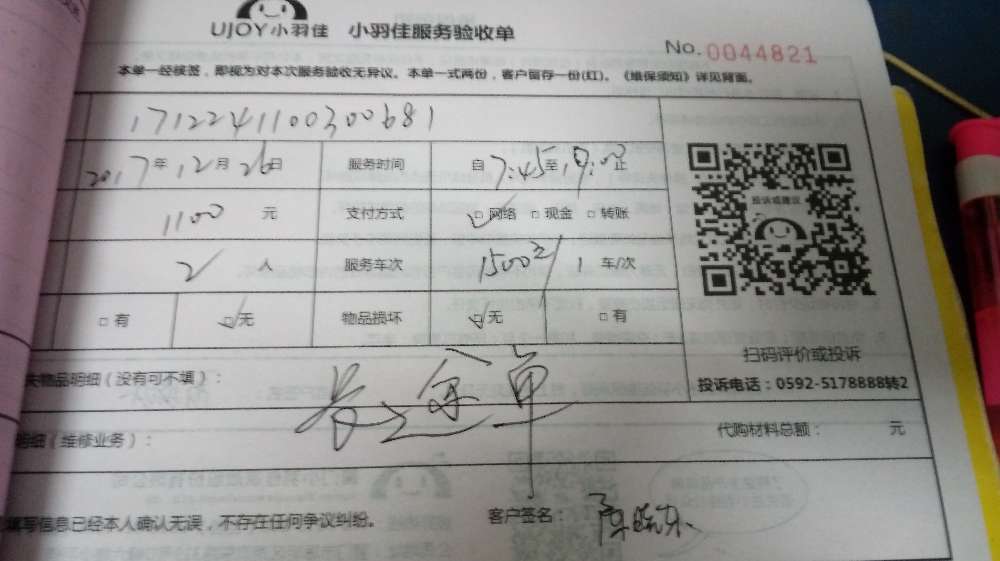 UJOY小羽佳 小羽佳服务验收单
No. 0044821
本单一经核签，即视为对本次服务验收无异议。本单一式两份，客户留存一份(红)。《维保须知》详见背面。
1712241100300681
2017年12月26日 服务时间 自7:45至19:00止
投诉或建议
1100元 支付方式 ☑网络 □现金 □转账
2人 服务车次 1500元/1车/次
□有 ☑无 物品损坏 ☑无 □有
扫码评价或投诉
失物品明细（没有可不填）：
投诉电话：0592-5178888转2
长途单
明细（维修业务）： 代购材料总额： 元
填写信息已经本人确认无误，不存在任何争议纠纷。 客户签名：